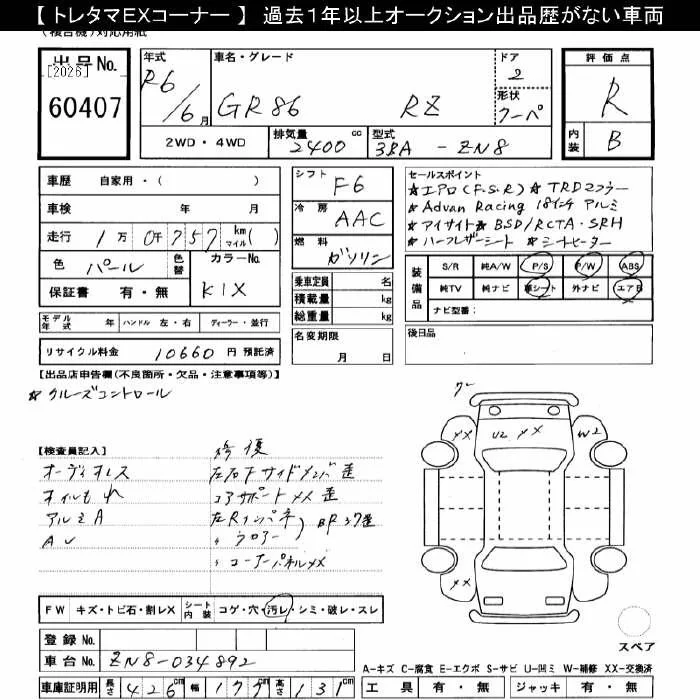 【 トレタマEXコーナー 】 過去1年以上オークション出品歴がない車両
(複合機)対応用紙
出品No. [2026] 60407
年式 R6/6月
車名・グレード GR86 RZ
ドア 2
形状 クーペ
評価点 R
内装 B
2WD・4WD
排気量 2400 cc
型式 3BA - ZN8
車歴 自家用・( )
車検 年 月
走行 1万 0千757 km マイル( )
色 パール 色替
カラーNo. K1X
保証書 有・無
シフト F6
冷房 AAC
燃料 ガソリン
乗車定員 名
積載量 kg
総重量 kg
セールスポイント
☆エアロ(F.S.R) ☆ TRDマフラー
☆Advan Racing 18インチ アルミ
☆アイサイト☆BSD/RCTA・SRH
☆ハーフレザーシート ☆シートヒーター
装備品 S/R 純A/W P/S P/W ABS
純TV 純ナビ 革シート 外ナビ エアB
ナビ型番:
モデル年式 年 ハンドル 左・右 ディーラー・並行
リサイクル料金 10660 円 預託済
名変期限 月 日
後日品
【出品店申告欄(不良箇所・欠品・注意事項等)】
☆クルーズコントロール
【検査員記入】 修復
オーディオレス 左右下サイドメンバ歪
オイルもれ コアサポート メメ 歪
アルミA 左Rインパネ
Aレ 〃 フロアー BPスレ歪
〃 コーナーパネルメメ
クー
XX U2 XX W2
XX
FW キズ・トビ石・割レX シート内装 コゲ・穴・汚レ・シミ・破レ・スレ
登録No.
車台No. ZN8-034892
車庫証明用 長さ 426cm 幅 177cm 高さ 131cm
スペア
A-キズ C-腐食 E-エクボ S-サビ U-凹ミ W-補修 XX-交換済
工具 有・無 ジャッキ 有・無